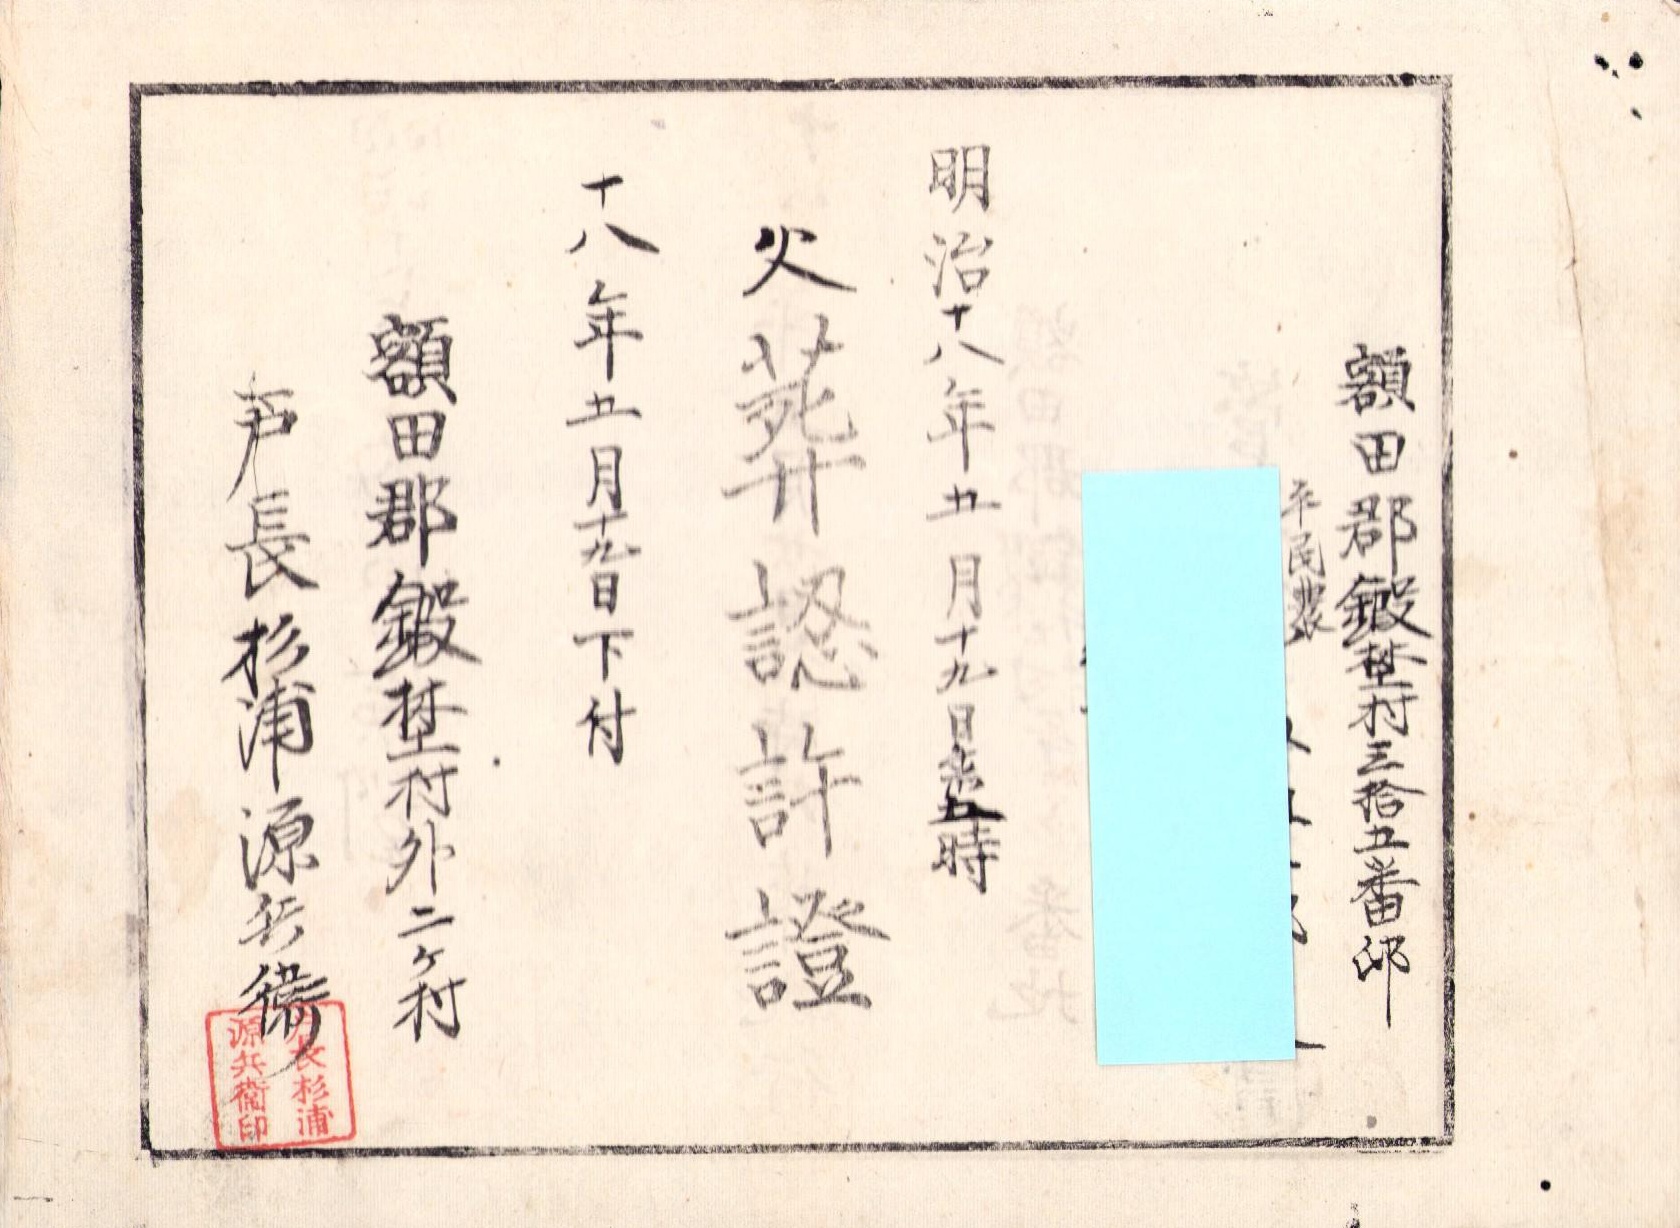 額田郡鍛埜村三拾五番邸
平民農
明治十八年五月十九日午后五時
火葬認許證
十八年五月十九日下付
額田郡鍛埜村外二ヶ村
戸長杉浦源兵衛
戸長杉浦
源兵衛印